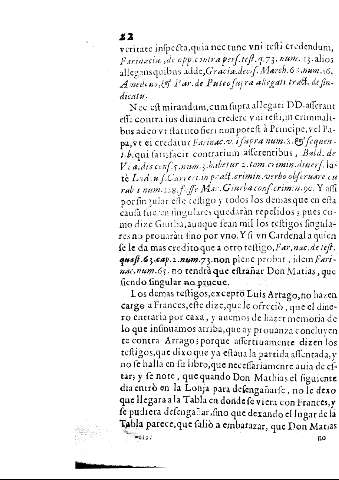 22
veritate inspecta, quia nec tunc vni testi credendum,
Farinacia, de opp. contra pers. test. q. 73. num. 13. alios
allegans quibus adde, Gracia. decis. March. 63. num. 16.
Amedeus, & Par. de Puteo supra allegati tract. de sin-
dicatu.
Nec est mirandum, cum supra allegati DD. asserant
esse contra ius diuinum credere vni testi, in criminali-
bus adeo vt statuto fieri non potest à Principe, vel Pa-
pa, vt ei credatur Farinac. v. supra num. 2. & sequen-
tib. qui satisfacit contrarium asserentibus, Bald. de
num. 3. late
nu. 90. Y assi
por singular este testigo y todos los demas que en esta
causa fueren singulares quedarán repelidos; pues co-
mo dize Giurba, aunque sean mil los testigos singula-
res no prouarán sino por vno. Y si vn Cardenal a quien
se le da mas credito que a otro testigo, Farinac. de test.
quæst. 63. cap. 2. num. 73. non plene probat, idem Fari-
nac. num. 65. no tendrà que estrañar Don Matias, que
siendo singular no prueue.
Los demas testigos, excepto Luis Artago, no hazen
cargo a Frances, este dize, que le ofreciò, que el dine-
ro entraria por caxa, y auemos de hazer memoria de
lo que insinuamos arriba, que ay prouanza concluyen
te contra Artago; porque assertiuamente dizen los
testigos, que dixo que ya estaua la partida assentada, y
no se halla en su libro, que necessariamente auia de es-
tar; y se note, que quando Don Mathias el siguiente
dia entrò en la Lonja para desengañarse, no le dexo
que llegara a la Tabla en donde se viera con Frances, y
se pudiera desengañar, sino que dexando el lugar de la
Tabla parece, que saliò a embarazar, que Don Matias
no